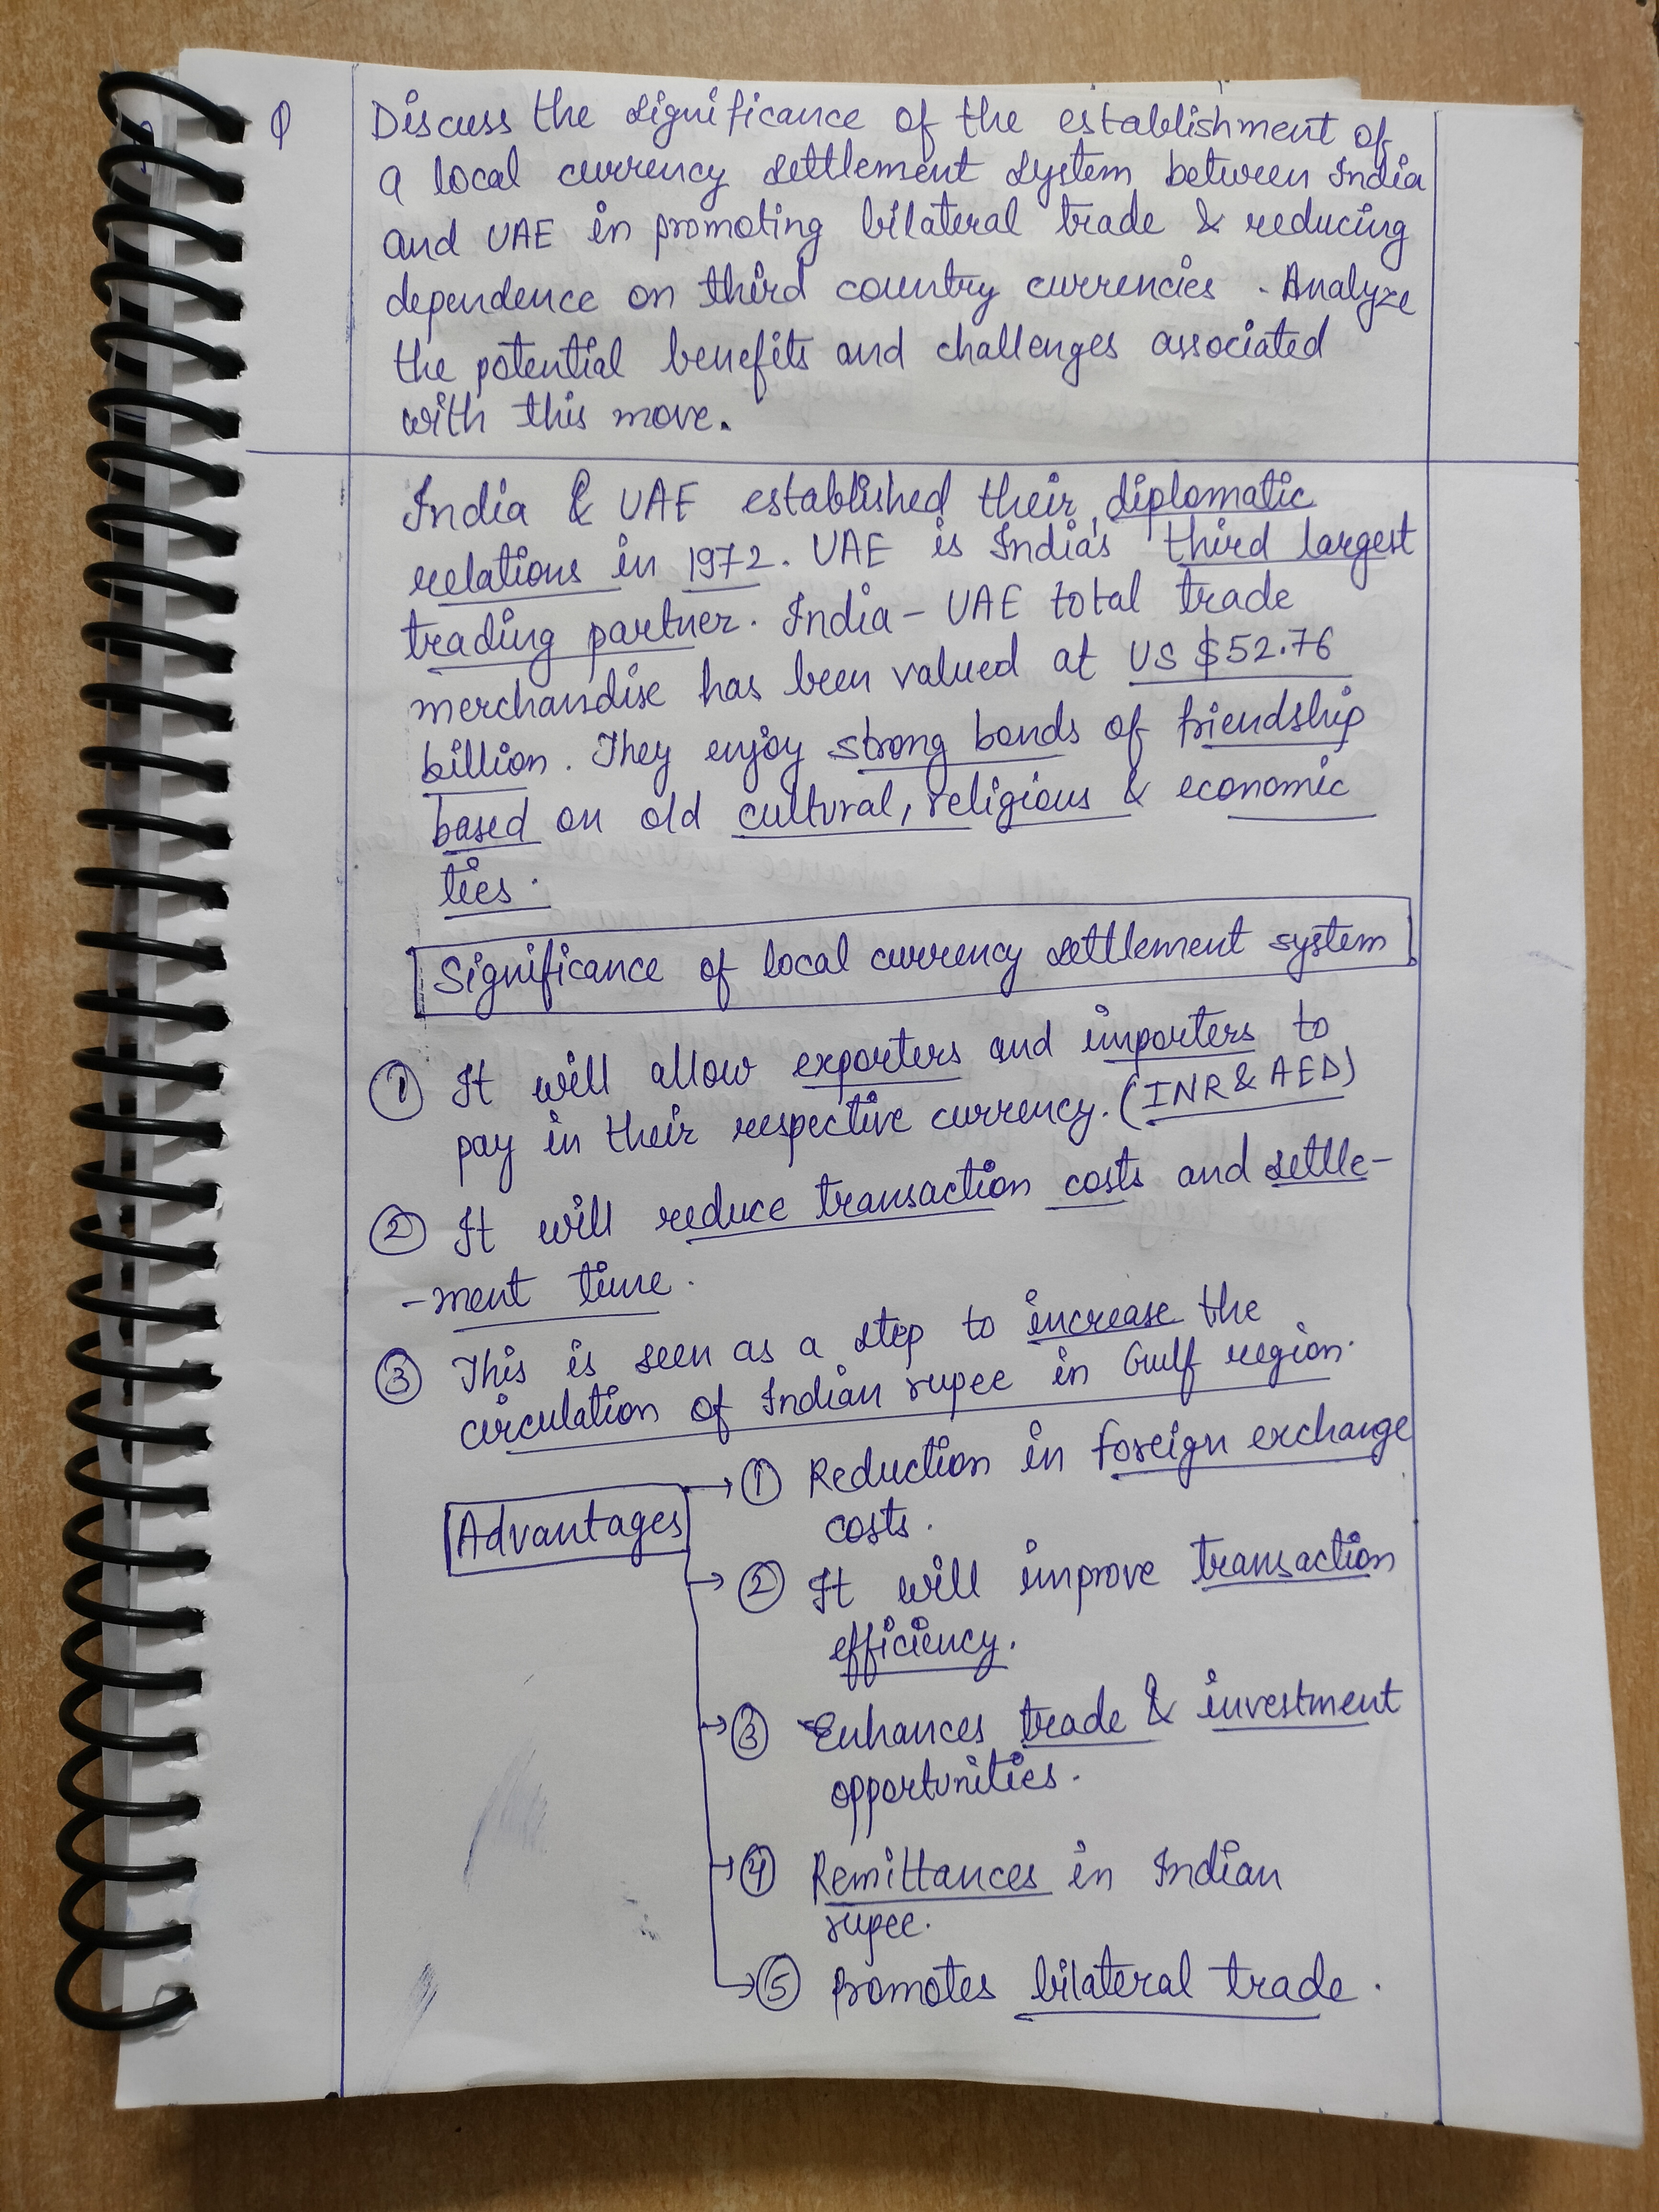 Q
Discuss the significance of the establishment of
a local currency settlement system between India
and UAE in promoting bilateral trade & reducing
dependence on third country currencies. Analyze
the potential benefits and challenges associated
with this move.
India & UAE established their diplomatic
relations in 1972. UAE is India's third largest
trading partner. India-UAE total trade
merchandise has been valued at US $52.76
billion. They enjoy strong bonds of friendship
based on old cultural, religious & economic
ties.
Significance of local currency settlement system
① It will allow exporters and importers to
pay in their respective currency. (INR & AED)
② It will reduce transaction costs and settle-
-ment time.
③ This is seen as a step to increase the
circulation of Indian rupee in Gulf region.
Advantages
→ ① Reduction in foreign exchange
costs.
→ ② It will improve transaction
efficiency.
→ ③ Enhances trade & investment
opportunities.
→ ④ Remittances in Indian
rupee.
→ ⑤ promotes bilateral trade.